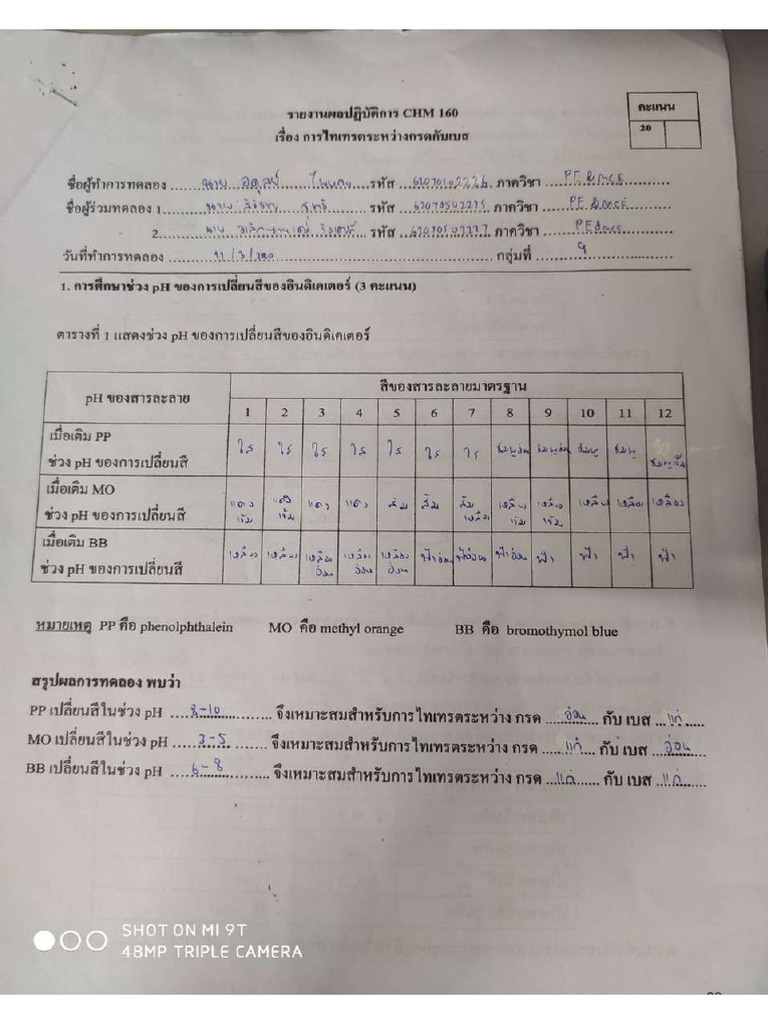 รายงานผลปฏิบัติการ CHM 160
เรื่อง การไทเทรตระหว่างกรดกับเบส
คะแนน
20
ชื่อผู้ทำการทดลอง นาย รหัส ภาควิชา
ชื่อผู้ร่วมทดลอง 1. นาย รหัส ภาควิชา
2. นาย รหัส ภาควิชา
วันที่ทำการทดลอง กลุ่มที่ 9
1. การศึกษาช่วง pH ของการเปลี่ยนสีของอินดิเคเตอร์ (3 คะแนน)
ตารางที่ 1 แสดงช่วง pH ของการเปลี่ยนสีของอินดิเคเตอร์
pH ของสารละลาย สีของสารละลายมาตรฐาน
1 2 3 4 5 6 7 8 9 10 11 12
เมื่อเติม PP ใส ใส ใส ใส ใส ใส ใส ชมพูอ่อน ชมพูอ่อน ชมพู ชมพู ชมพูเข้ม
ช่วง pH ของการเปลี่ยนสี
เมื่อเติม MO แดงเข้ม แดงเข้ม แดง แดง ส้ม ส้ม ส้มเหลือง เหลืองเข้ม เหลืองเข้ม เหลือง เหลือง เหลือง
ช่วง pH ของการเปลี่ยนสี
เมื่อเติม BB เหลือง เหลือง เหลืองอ่อน เหลืองอ่อน เหลืองอ่อน ฟ้าอ่อน ฟ้าอ่อน ฟ้าอ่อน ฟ้า ฟ้า ฟ้า ฟ้า
ช่วง pH ของการเปลี่ยนสี
หมายเหตุ PP คือ phenolphthalein MO คือ methyl orange BB คือ bromothymol blue
สรุปผลการทดลอง พบว่า
PP เปลี่ยนสีในช่วง pH 8-10 จึงเหมาะสมสำหรับการไทเทรตระหว่าง กรด อ่อน กับ เบส แก่
MO เปลี่ยนสีในช่วง pH 3-5 จึงเหมาะสมสำหรับการไทเทรตระหว่าง กรด แก่ กับ เบส อ่อน
BB เปลี่ยนสีในช่วง pH 6-8 จึงเหมาะสมสำหรับการไทเทรตระหว่าง กรด แก่ กับ เบส แก่
SHOT ON MI 9T
48MP TRIPLE CAMERA